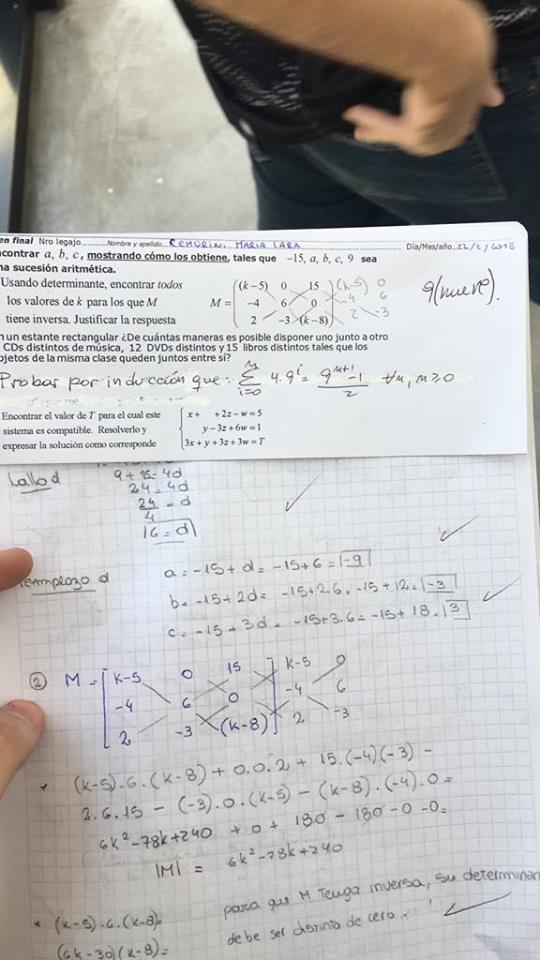 en final Nro legajo.............Nombre y apellido. CEMORIN, MARIA LARA Día/Mes/año 22/2/2018
contrar a, b, c, mostrando cómo los obtiene, tales que −15, a, b, c, 9 sea
na sucesión aritmética.
Usando determinante, encontrar todos
los valores de k para los que M
tiene inversa. Justificar la respuesta
M = ( (k−5) 0 15 ) (k-5) 0
−4 6 0 -4 6
2 −3 (k−8) 2 -3
9 (nueve).
n un estante rectangular ¿De cuántas maneras es posible disponer uno junto a otro
CDs distintos de música, 12 DVDs distintos y 15 libros distintos tales que los
bjetos de la misma clase queden juntos entre sí?
Probar por inducción que: Σ i=0 n 4.9^i = 9^(n+1) - 1 / 2 ∀n, n≥0
Encontrar el valor de T para el cual este
sistema es compatible. Resolverlo y
expresar la solución como corresponde
x + + 2z − w = 5
y − 3z + 6w = 1
3x + y + 3z + 3w = T
Hallo d
9 + 15 = 4d
24 = 4d
24/4 = d
16 = d
Reemplazo d
a = -15 + d = -15 + 6 = -9
b = -15 + 2d = -15 + 2.6 = -15 + 12 = -3
c = -15 + 3d = -15 + 3.6 = -15 + 18 = 3
② M = [ k-5 0 15 ] k-5 0
-4 6 0 -4 6
2 -3 (k-8) 2 -3
* (k-5).6.(k-8) + 0.0.2 + 15.(-4)(-3) -
2.6.15 - (-3).0.(k-5) - (k-8).(-4).0 =
6k² - 78k + 240 + 0 + 180 - 180 - 0 - 0 =
|M| = 6k² - 78k + 240
para que M Tenga inversa, su determinan
debe ser distinto de cero.
* (k-5).6.(k-8) =
(6k-30)(k-8) =